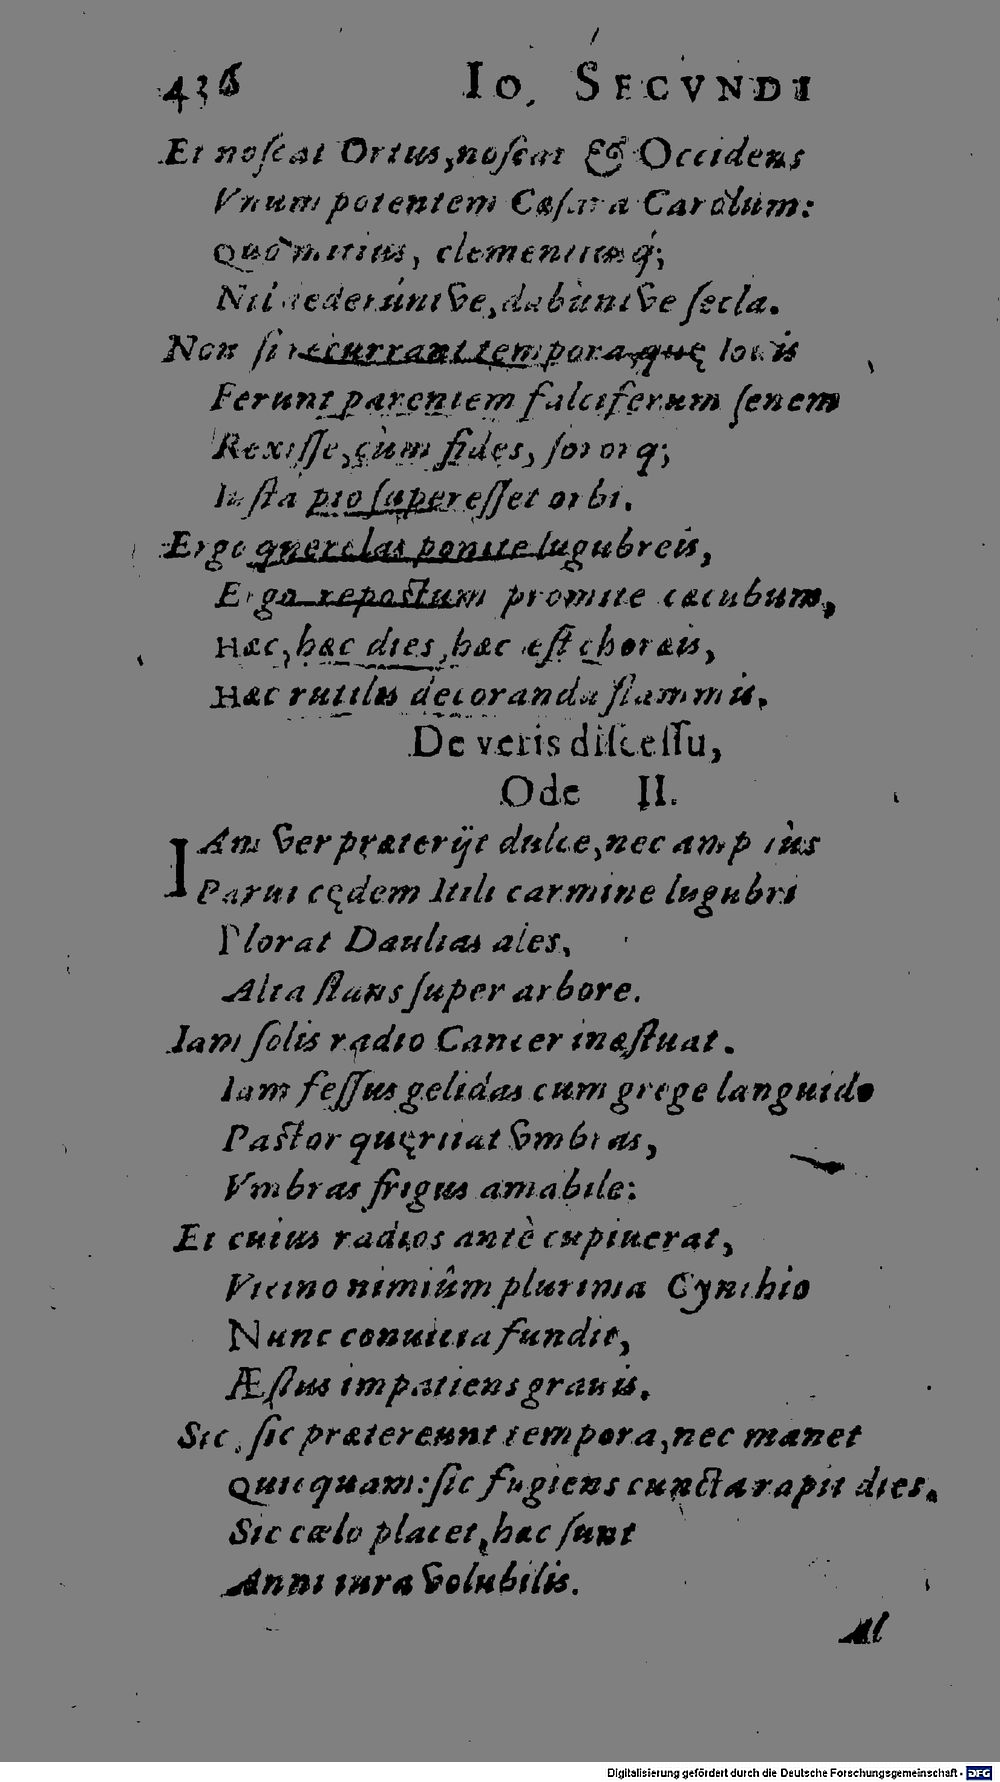 436 IO. SECVNDI
Et noſcat Ortus, noſcat & Occidens
Vnum potentem Cæſara Carolum:
Quo mitius, clementiusq́;
Nil dederúntve, dabùntve ſecla.
Non ſi recurrant tempora, quę Iouis
Ferunt parentem falciferum ſenem
Rexiſſe, cùm fides, ſororq;
Iuſta pio ſupereſſet orbi.
Ergo querelas ponite lugubreis,
Ergo repoſtum promite cæcubum,
Hæc, hæc dies, hæc eſt choreis,
Hæc rutilis decoranda flammis.
De veris diſceſſu,
Ode II.
IAm ver præterijt dulce, nec ampliùs
Parui cędem Itili carmine lugubri
Plorat Daulias ales,
Alta ſtans ſuper arbore.
Iam ſolis radio Cancer inæſtuat.
Iam feſſus gelidas cum grege languido
Paſtor quęritat vmbras,
Vmbras frigus amabile:
Et cuius radios antè cupiuerat,
Vicino nimiûm plurima Cynthio
Nunc conuitia fundit,
Æſtus impatiens grauis.
Sic, ſic prætereunt tempora, nec manet
Quicquam: ſic fugiens cuncta rapit dies.
Sic cælo placet, hæc ſunt
Anni iura volubilis.
Digitalisierung gefördert durch die Deutsche Forschungsgemeinschaft - DFG